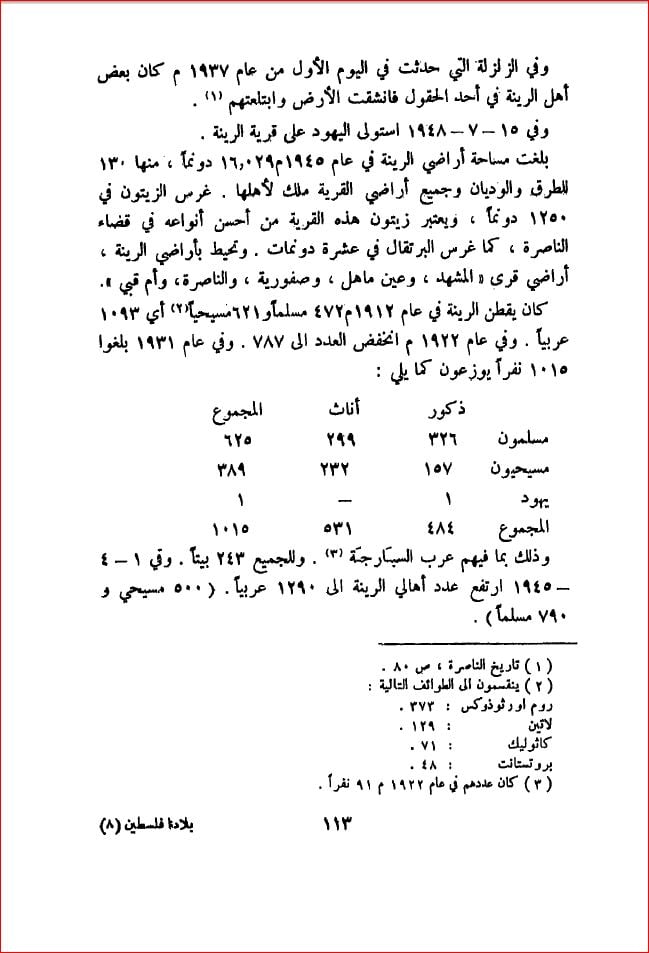 وفي الزلزلة التي حدثت في اليوم الأول من عام ١٩٣٧ م كان بعض
أهل الرينة في أحد الحقول فانشقت الأرض وابتلعتهم (١) .
وفي ١٥ – ٧ – ١٩٤٨ استولى اليهود على قرية الرينة .
بلغت مساحة أراضي الرينة في عام ١٩٤٥م١٦,٠٢٩ دونماً ، منها ١٣٠
للطرق والوديان وجميع أراضي القرية ملك لأهلها . غرس الزيتون في
١٢٥٠ دونماً ، ويعتبر زيتون هذه القرية من أحسن أنواعه في قضاء
الناصرة ، كما غرس البرتقال في عشرة دونمات . وتحيط بأراضي الرينة ،
أراضي قرى « المشهد ، وعين ماهل ، وصفورية ، والناصرة، وأم قبي ».
كان يقطن الرينة في عام ١٩١٢م٤٧٢ مسلماً و٦٢١مسيحياً(٢) أي ١٠٩٣
عربياً . وفي عام ١٩٢٢ م انخفض العدد الى ٧٨٧ . وفي عام ١٩٣١ بلغوا
١٠١٥ نفراً يوزعون كما يلي :
ذكور أناث المجموع
مسلمون ٣٢٦ ٢٩٩ ٦٢٥
مسيحيون ١٥٧ ٢٣٢ ٣٨٩
يهود ١ – ١
المجموع ٤٨٤ ٥٣١ ١٠١٥
وذلك بما فيهم عرب السبارجة (٣) . وللجميع ٢٤٣ بيتاً . وفي ١ – ٤
– ١٩٤٥ ارتفع عدد أهالي الرينة الى ١٢٩٠ عربياً . ( ٥٠٠ مسيحي و
٧٩٠ مسلماً ) .
( ١ ) تاريخ الناصرة ، ص ٨٠ .
( ٢ ) ينقسمون الى الطوائف التالية :
روم اورثوذوكس : ٣٧٣ .
لاتين : ١٢٩ .
كاثوليك : ٧١ .
بروتستانت : ٤٨ .
( ٣ ) كان عددهم في عام ١٩٢٢ م ٩١ نفراً .
١١٣ بلادنا فلسطين (٨)